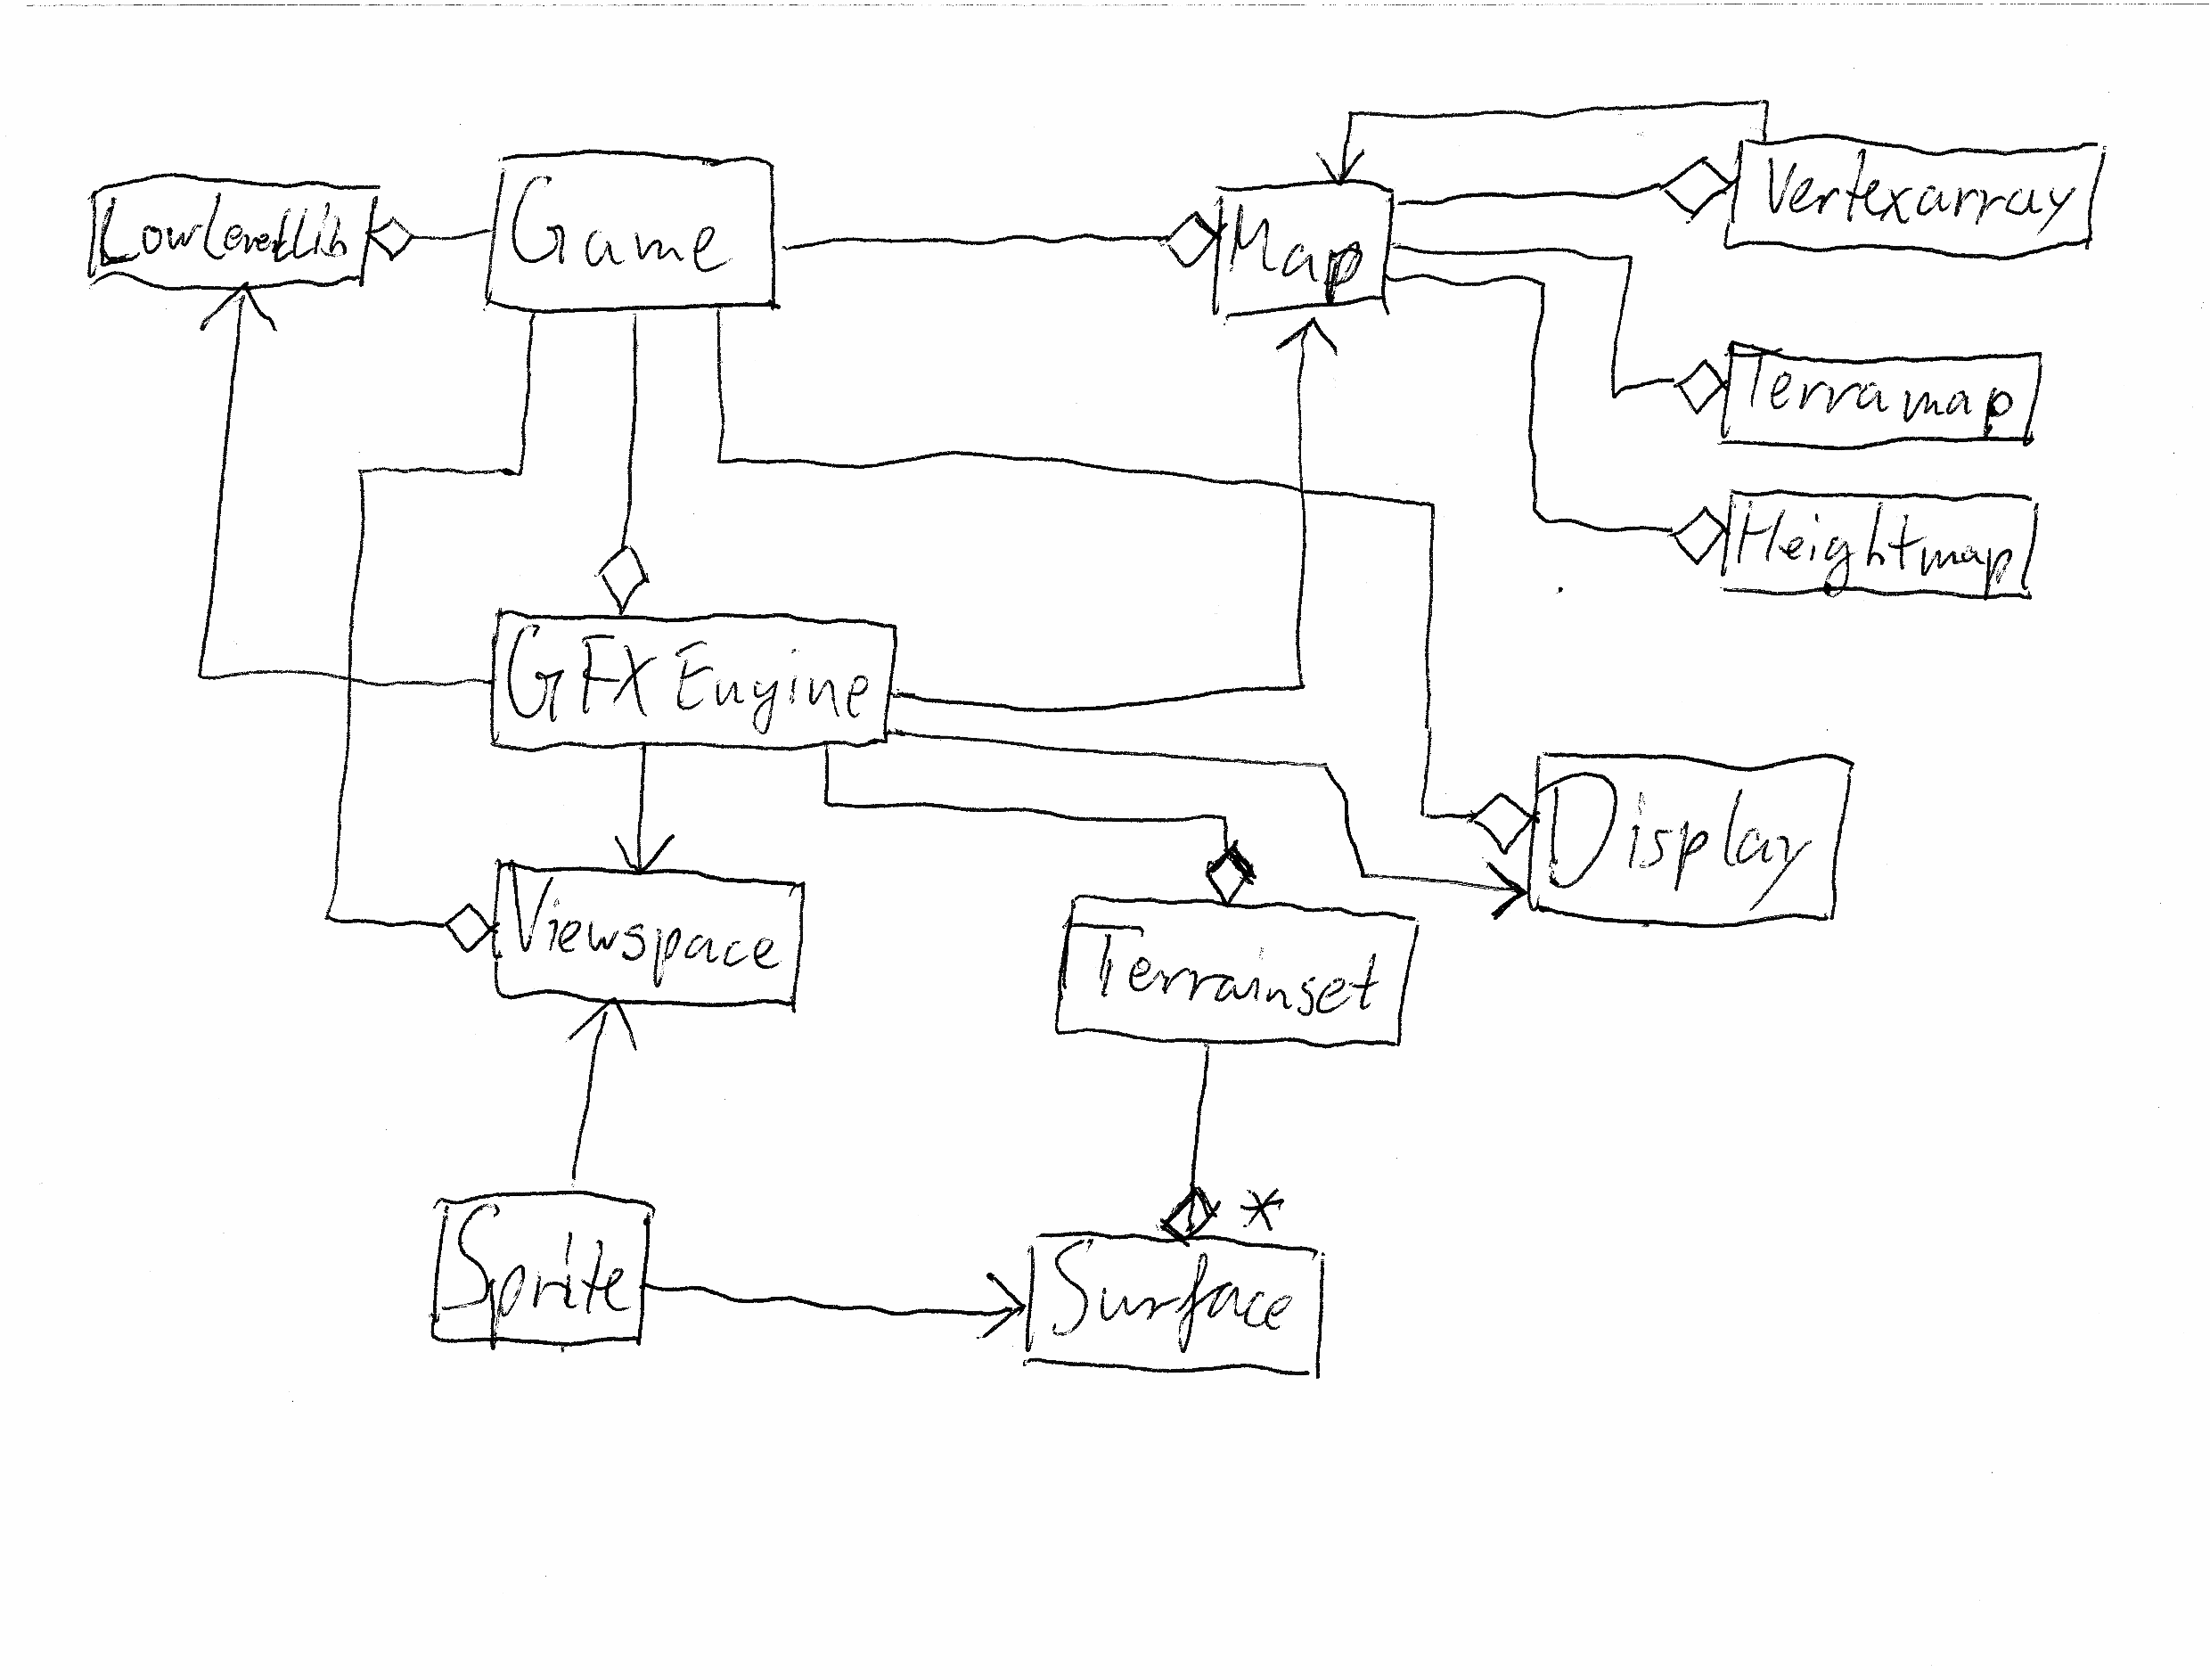 LowLevelLib
Game
Map
Vertexarray
Terramap
Heightmap
GFX Engine
Display
Viewspace
Terrainset
*
Sprite
Surface